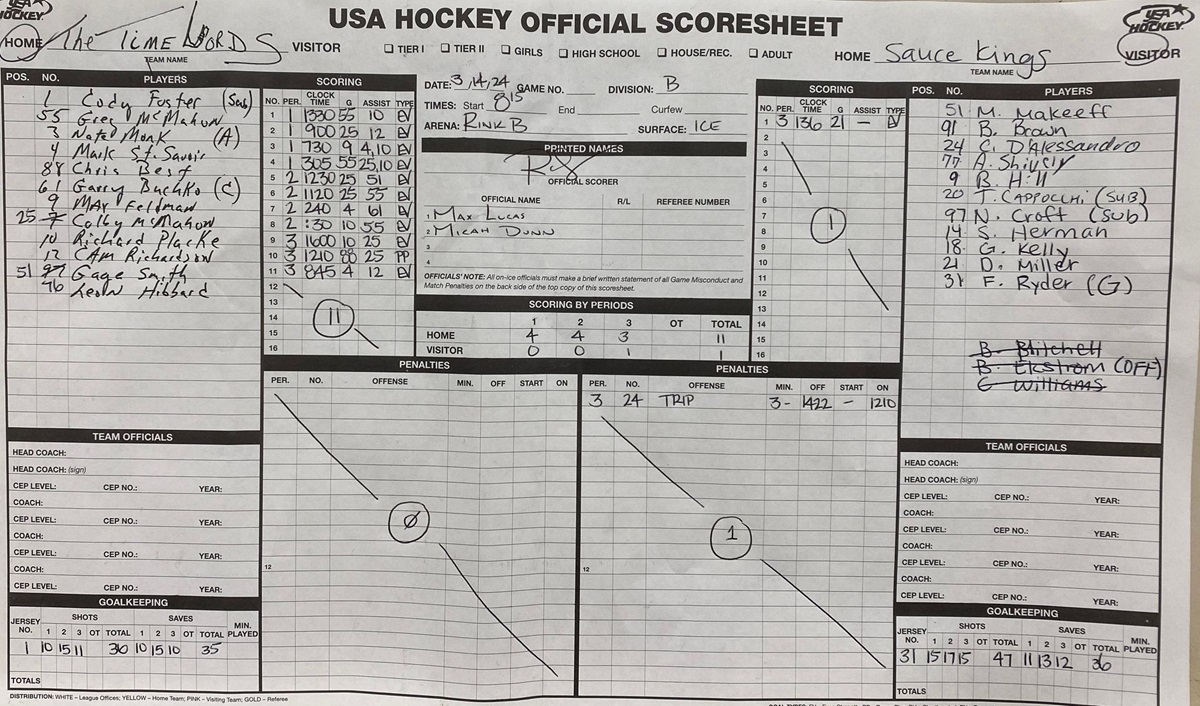 USA HOCKEY OFFICIAL SCORESHEET
USA HOCKEY.
HOME The Time Lords VISITOR
TEAM NAME
☐ TIER I ☐ TIER II ☐ GIRLS ☐ HIGH SCHOOL ☐ HOUSE/REC. ☐ ADULT
HOME Sauce Kings VISITOR
TEAM NAME
USA HOCKEY.
POS. NO. PLAYERS
1 Cody Foster (Sub)
55 Greg McMahon
3 Nate Monk (A)
4 Mark St. Savoir
88 Chris Best
61 Garry Buchko (C)
9 Max Feldman
25 7 Colby McMahon
10 Richard Placke
12 Cam Richardson
51 97 Gage Smith
96 Leon Hibbard
SCORING
NO. PER. CLOCK TIME G ASSIST TYPE
1 1 1330 55 10 EV
2 1 900 25 12 EV
3 1 730 9 4,10 EV
4 1 305 55 25,10 EV
5 2 1230 25 51 EV
6 2 1120 25 55 EV
7 2 240 4 61 EV
8 2 :30 10 55 EV
9 3 1600 10 25 EV
10 3 1210 88 25 PP
11 3 845 4 12 EV
12
13
14 11
15
16
DATE: 3/14/24 GAME NO. DIVISION: B
TIMES: Start 815 End Curfew
ARENA: RINK B SURFACE: ICE
PRINTED NAMES
OFFICIAL SCORER
OFFICIAL NAME R/L REFEREE NUMBER
1 MAX LUCAS
2 MICAH DUNN
3
4
OFFICIALS' NOTE: All on-ice officials must make a brief written statement of all Game Misconduct and
Match Penalties on the back side of the top copy of this scoresheet.
SCORING BY PERIODS
1 2 3 OT TOTAL
HOME 4 4 3 11
VISITOR 0 0 1 1
SCORING
NO. PER. CLOCK TIME G ASSIST TYPE
1 3 136 21 — EV
2
3
4
5
6
7 1
8
9
10
11
12
13
14
15
16
POS. NO. PLAYERS
51 M. Makeeff
91 B. Brown
24 C. D'Alessandro
77 A. Shively
9 B. Hill
20 T. CAPPOCCHI (SUB)
97 N. Croft (sub)
14 S. Herman
18 G. Kelly
21 D. Miller
31 F. Ryder (G)
B. Blitchell
B. Ekstrom (OFF)
C Williams
PENALTIES
PER. NO. OFFENSE MIN. OFF START ON
0
12
PENALTIES
PER. NO. OFFENSE MIN. OFF START ON
3 24 TRIP 3- 1422 - 1210
1
12
TEAM OFFICIALS
HEAD COACH:
HEAD COACH: (sign)
CEP LEVEL: CEP NO.: YEAR:
COACH:
CEP LEVEL: CEP NO.: YEAR:
COACH:
CEP LEVEL: CEP NO.: YEAR:
COACH:
CEP LEVEL: CEP NO.: YEAR:
GOALKEEPING
JERSEY NO. SHOTS 1 2 3 OT TOTAL SAVES 1 2 3 OT TOTAL MIN. PLAYED
1 10 15 11 36 10 15 10 35
TOTALS
TEAM OFFICIALS
HEAD COACH:
HEAD COACH: (sign)
CEP LEVEL: CEP NO.: YEAR:
COACH:
CEP LEVEL: CEP NO.: YEAR:
COACH:
CEP LEVEL: CEP NO.: YEAR:
COACH:
CEP LEVEL: CEP NO.: YEAR:
GOALKEEPING
JERSEY NO. SHOTS 1 2 3 OT TOTAL SAVES 1 2 3 OT TOTAL MIN. PLAYED
31 15 17 15 47 11 13 12 36
TOTALS
DISTRIBUTION: WHITE – League Offices; YELLOW – Home Team; PINK – Visiting Team; GOLD – Referee